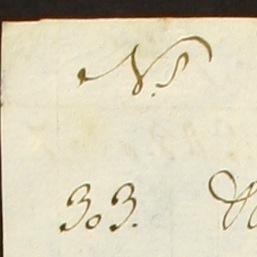 No.
303.